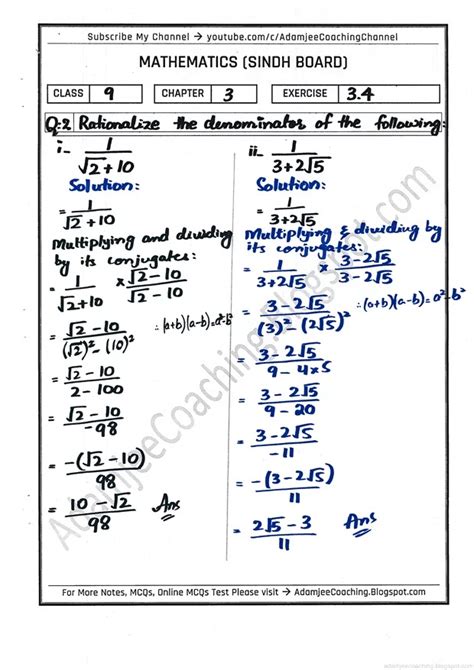 Subscribe My Channel → youtube.com/c/AdamjeeCoachingChannel
MATHEMATICS (SINDH BOARD)
CLASS 9 CHAPTER 3 EXERCISE 3.4
Q:2 Rationalize the denominator of the following:
i- 1/(√2+10)
Solution:
= 1/(√2+10)
Multiplying and dividing
by its conjugates:
= 1/(√2+10) × (√2-10)/(√2-10)
= (√2-10)/((√2)²-(10)²) ∴(a+b)(a-b)=a²-b²
= (√2-10)/(2-100)
= (√2-10)/-98
= -(√2-10)/98
= (10-√2)/98 Ans
ii- 1/(3+2√5)
Solution:
= 1/(3+2√5)
Multiplying & dividing by
its conjugates:
= 1/(3+2√5) × (3-2√5)/(3-2√5)
= (3-2√5)/((3)²-(2√5)²) ∴(a+b)(a-b)=a²-b²
= (3-2√5)/(9-4×5)
= (3-2√5)/(9-20)
= (3-2√5)/-11
= -(3-2√5)/11
= (2√5-3)/11 Ans
AdamjeeCoaching.Blogspot.com
For More Notes, MCQs, Online MCQs Test Please visit → AdamjeeCoaching.Blogspot.com
adamjeecoaching.blogspot.com